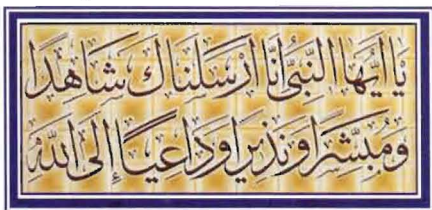 يا ايها النبي انا ارسلناك شاهدا
ومبشرا ونذيرا وداعيا إلى الله